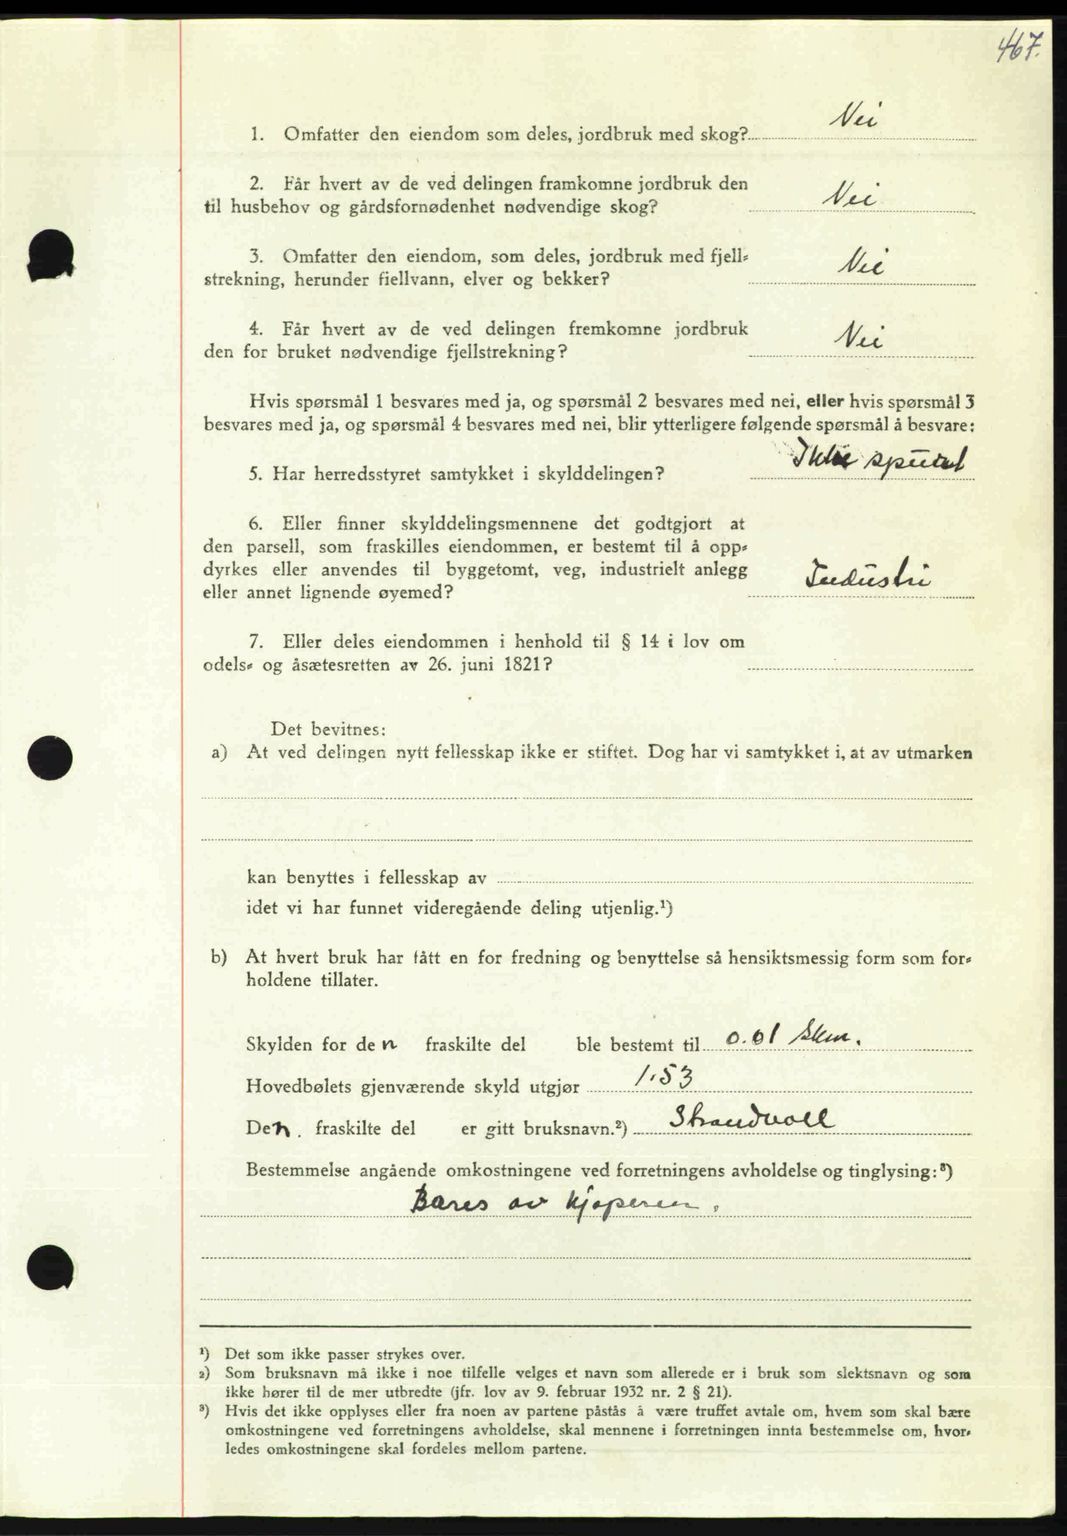 467.
1. Omfatter den eiendom som deles, jordbruk med skog? Nei
2. Får hvert av de ved delingen framkomne jordbruk den
til husbehov og gårdsfornødenhet nødvendige skog? Nei
3. Omfatter den eiendom, som deles, jordbruk med fjell-
strekning, herunder fiellvann, elver og bekker? Nei
4. Får hvert av de ved delingen fremkomne jordbruk
den for bruket nødvendige fjellstrekning? Nei
Hvis spørsmål 1 besvares med ja, og spørsmål 2 besvares med nei, eller hvis spørsmål 3
besvares med ja, og spørsmål 4 besvares med nei, blir ytterligere følgende spørsmål å besvare:
5. Har herredsstyret samtykket i skylddelingen? Ikke spurt
6. Eller finner skylddelingsmennene det godtgjort at
den parsell, som fraskilles eiendommen, er bestemt til å opp-
dyrkes eller anvendes til byggetomt, veg, industrielt anlegg
eller annet lignende øyemed? Industri
7. Eller deles eiendommen i henhold til § 14 i lov om
odels- og åsætesretten av 26. juni 1821?
Det bevitnes:
a) At ved delingen nytt fellesskap ikke er stiftet. Dog har vi samtykket i, at av utmarken
kan benyttes i fellesskap av
idet vi har funnet videregående deling utjenlig.¹)
b) At hvert bruk har fått en for fredning og benyttelse så hensiktsmessig form som for-
holdene tillater.
Skylden for den fraskilte del ble bestemt til 0.01 Skm.
Hovedbølets gjenværende skyld utgjør 1.53
Den. fraskilte del er gitt bruksnavn.²) Strandvoll
Bestemmelse angående omkostningene ved forretningens avholdelse og tinglysing:³)
Bæres av kjøperen.
¹) Det som ikke passer strykes over.
²) Som bruksnavn må ikke i noe tilfelle velges et navn som allerede er i bruk som slektsnavn og som
ikke hører til de mer utbredte (jfr. lov av 9. februar 1932 nr. 2 § 21).
³) Hvis det ikke opplyses eller fra noen av partene påstås å være truffet avtale om, hvem som skal bære
omkostningene ved forretningens avholdelse, skal mennene i forretningen innta bestemmelse om, hvor-
ledes omkostningene skal fordeles mellom partene.